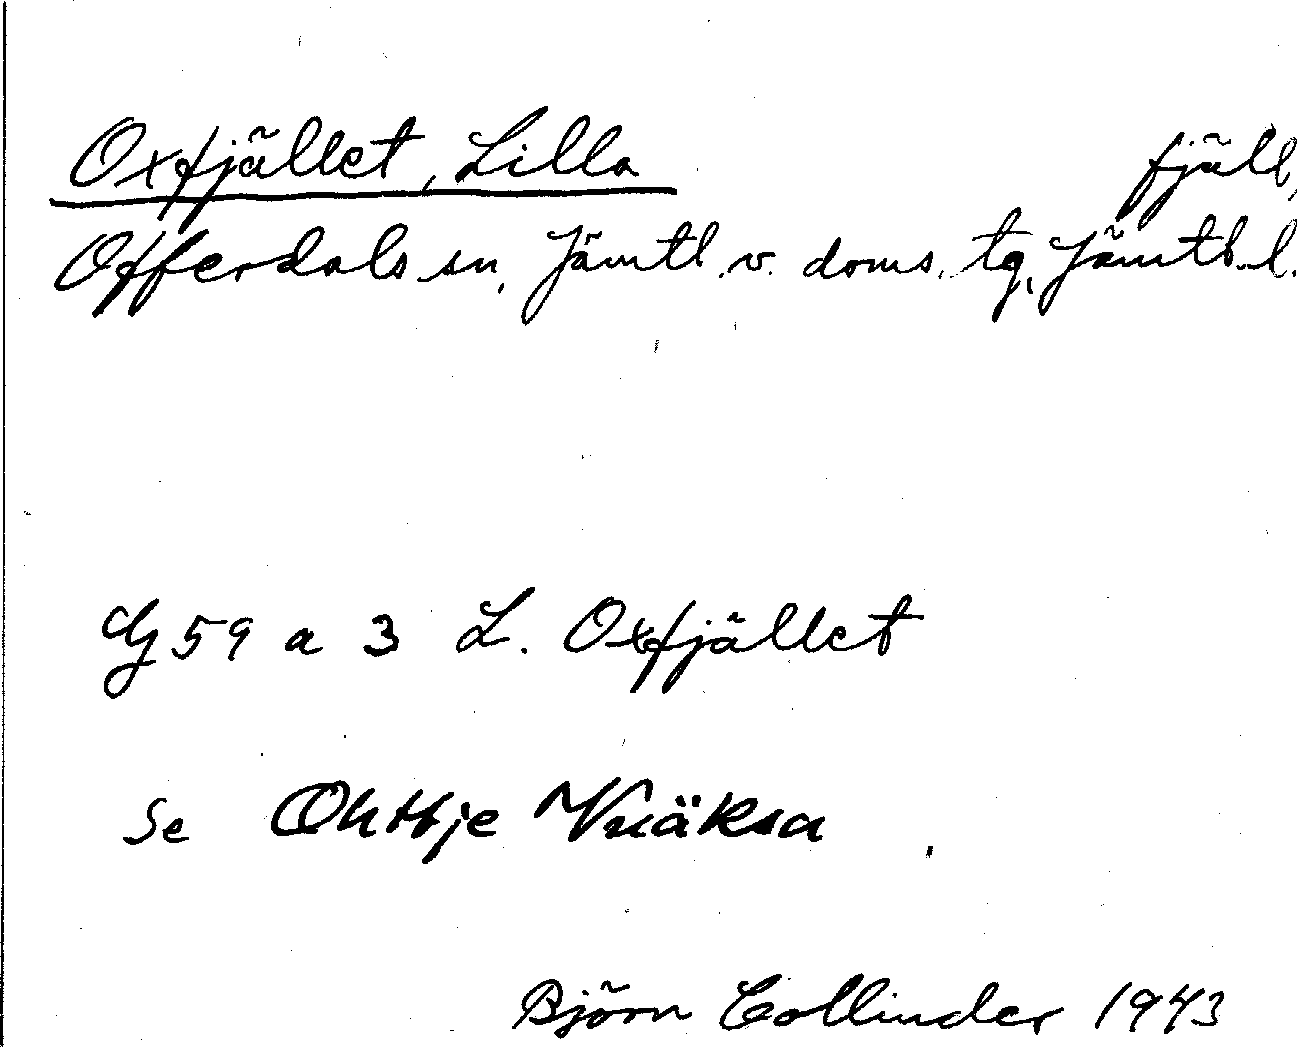 Oxfjället, Lilla fjäll,
Offerdals sn, Jämtl. v. doms. tg, Jämtl. l.
G 59 a 3 L. Oxfjället
Se Ohttje Vuäksa
Björn Collinder 1943